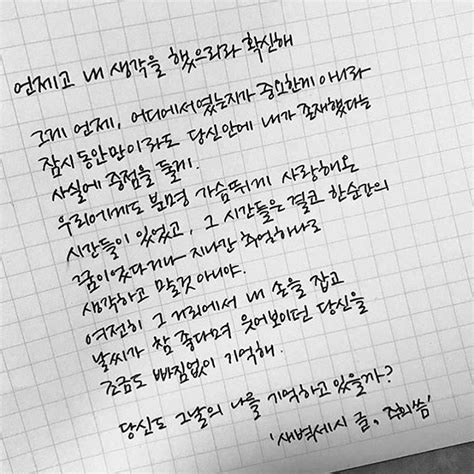 언제고 내 생각을 했으리라 확신해
그게 언제, 어디에서였는지가 중요한게 아니라
잠시동안만이라도 당신안에 내가 존재했다는
사실에 중점을 둘게.
우리에게도 분명 가슴뛰게 사랑해온
시간들이 있었고, 그 시간들은 결코 한순간의
꿈이었다거나 지나간 추억하나로
생각하고 말것 아니야.
여전히 그 거리에서 내 손을 잡고
날씨가 참 좋다며 웃어보이던 당신을
조금도 빠짐없이 기억해.
당신도 그날의 나를 기억하고 있을까?
'새벽세시 글, 주희씀'